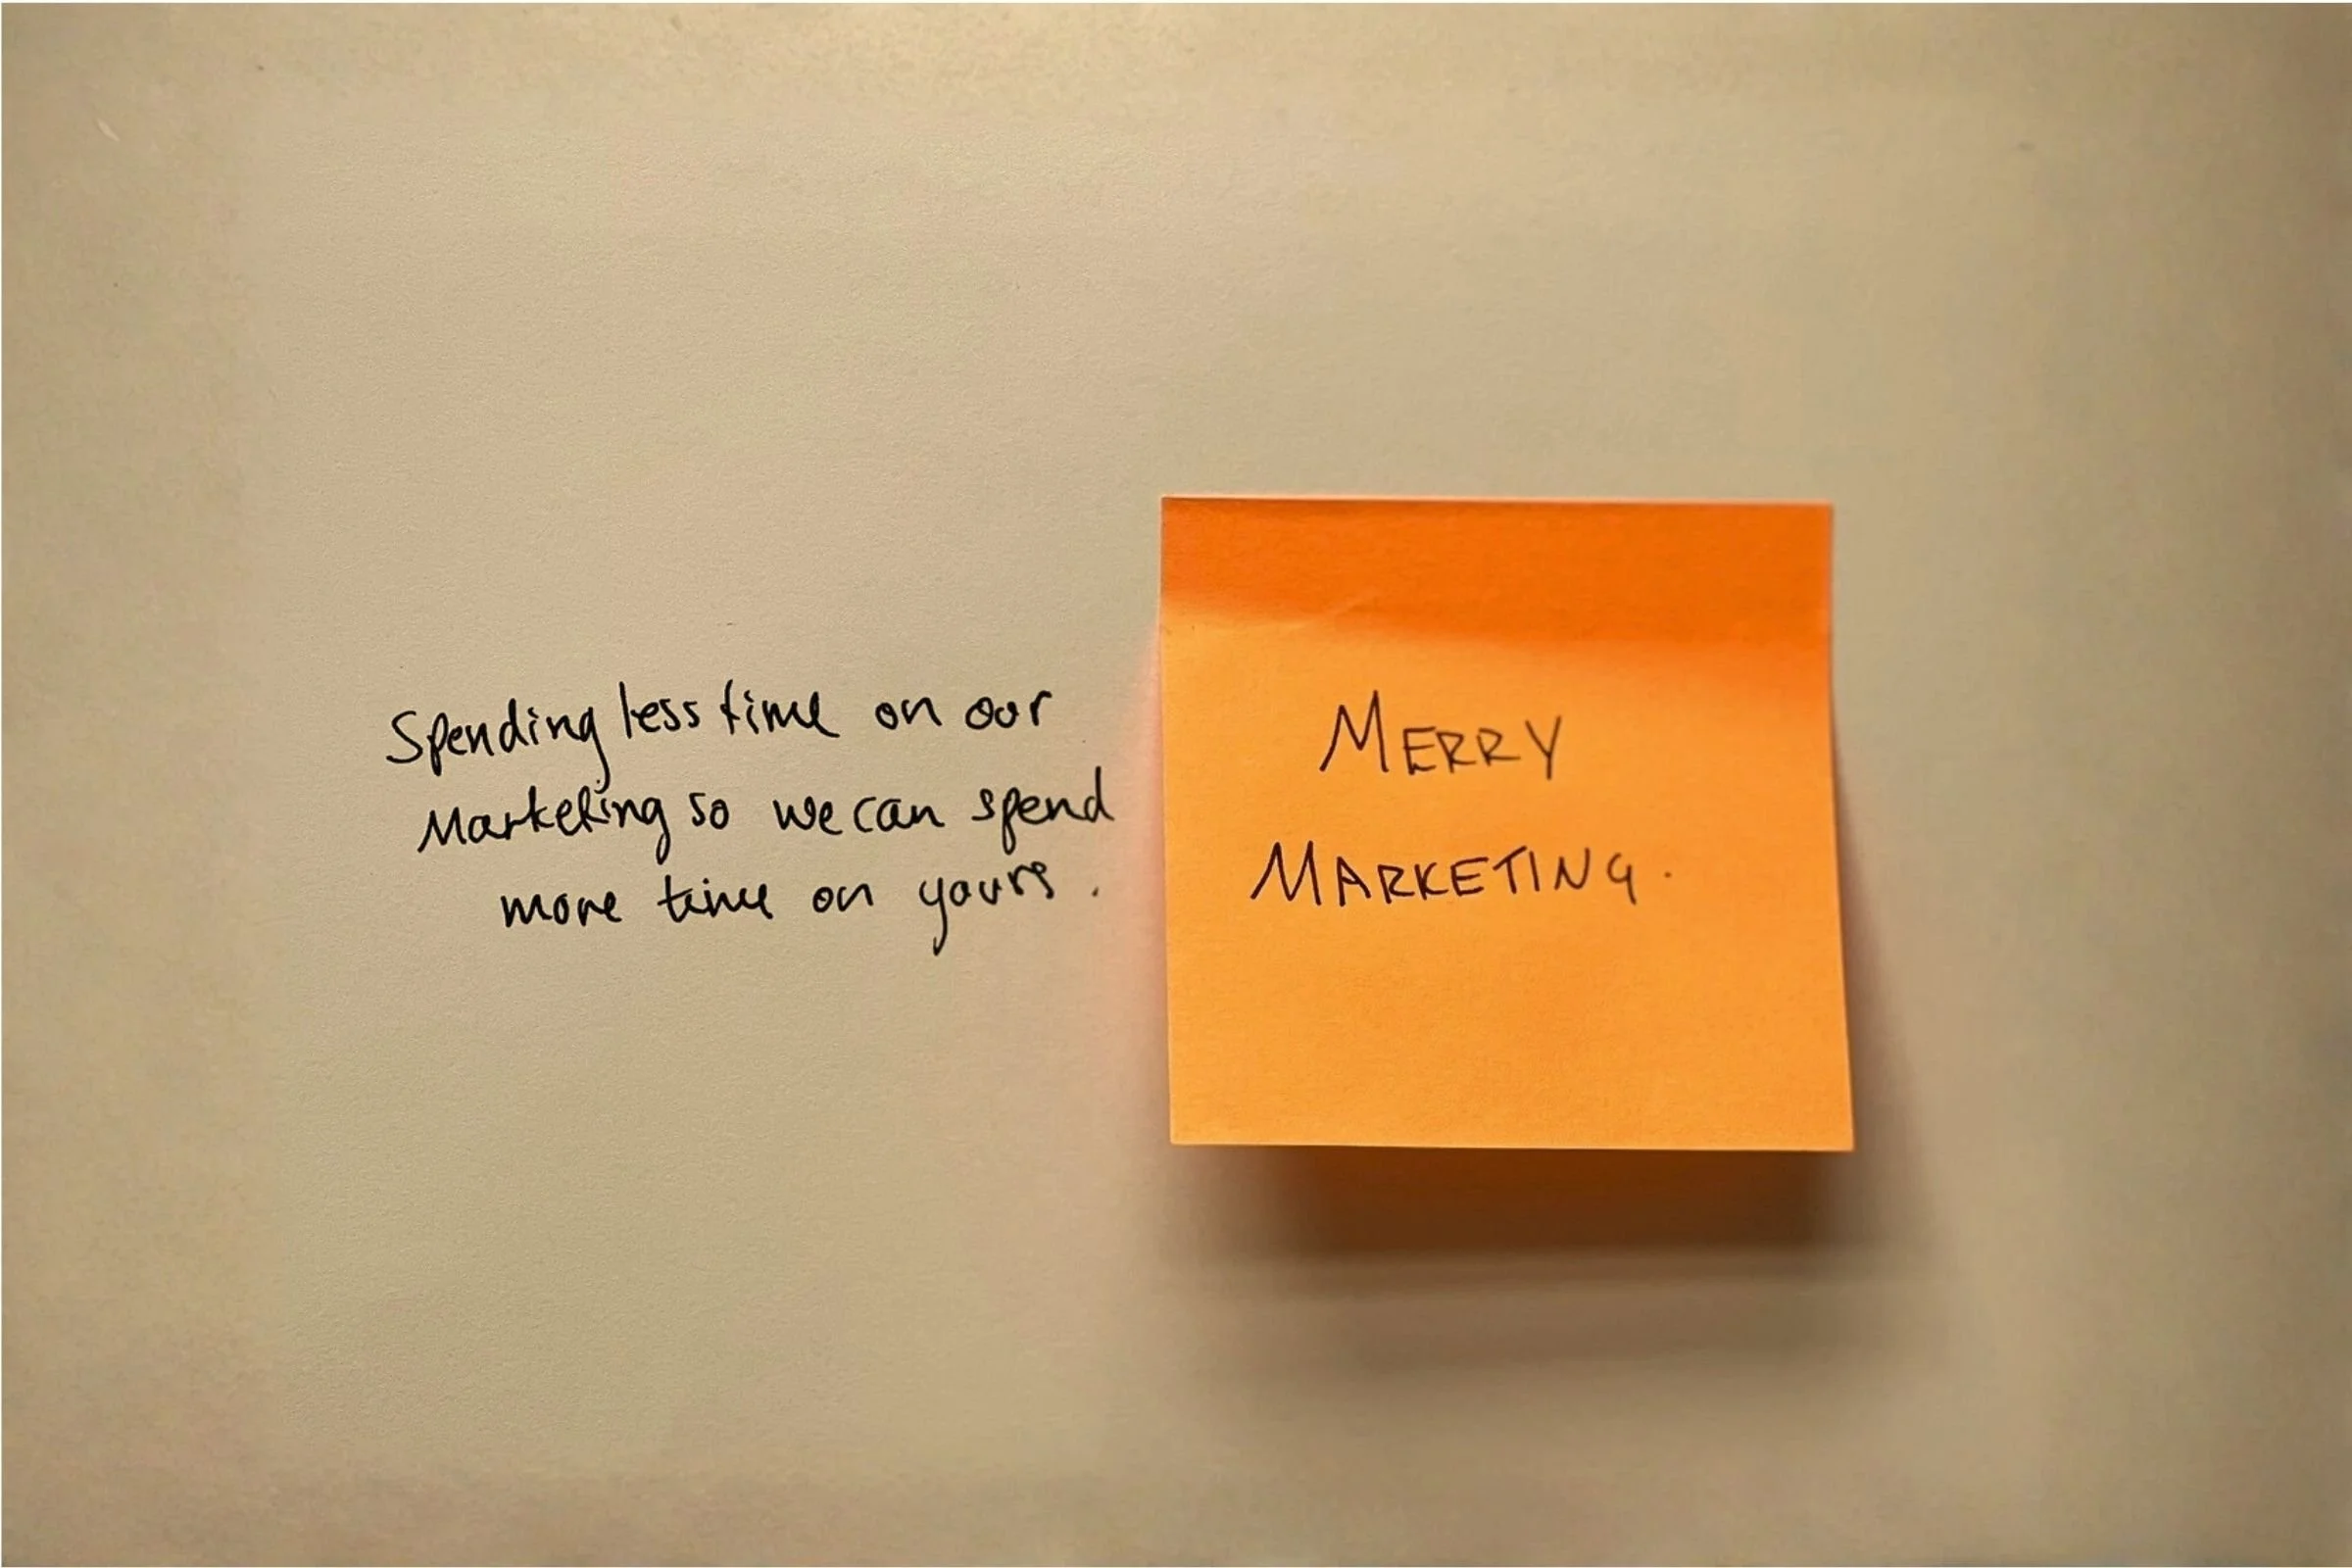 Spending less time on our
Marketing so we can spend
more time on yours.
MERRY
MARKETING.